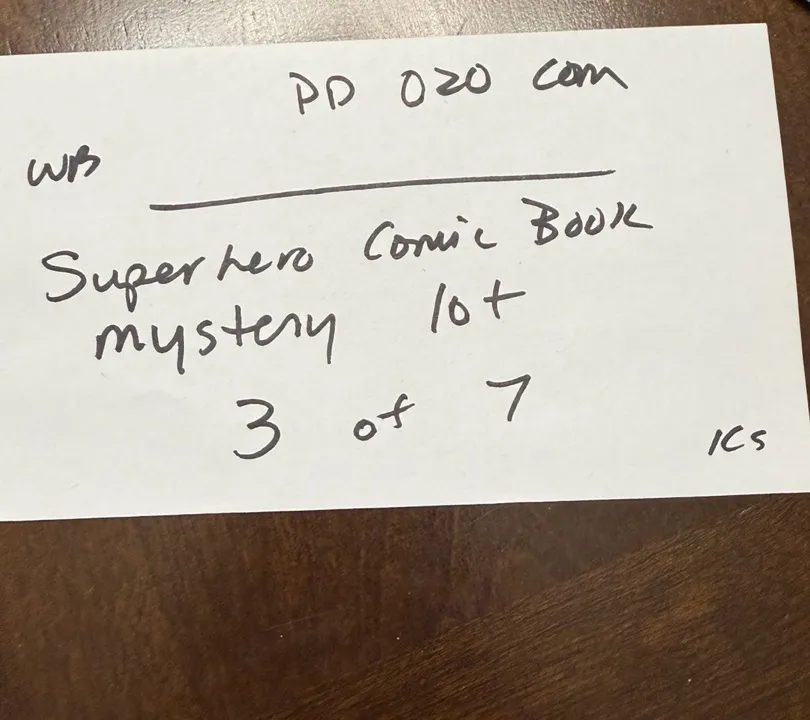 PD 020 com
WB
Superhero Comic Book
mystery 10+
3 of 7
KS